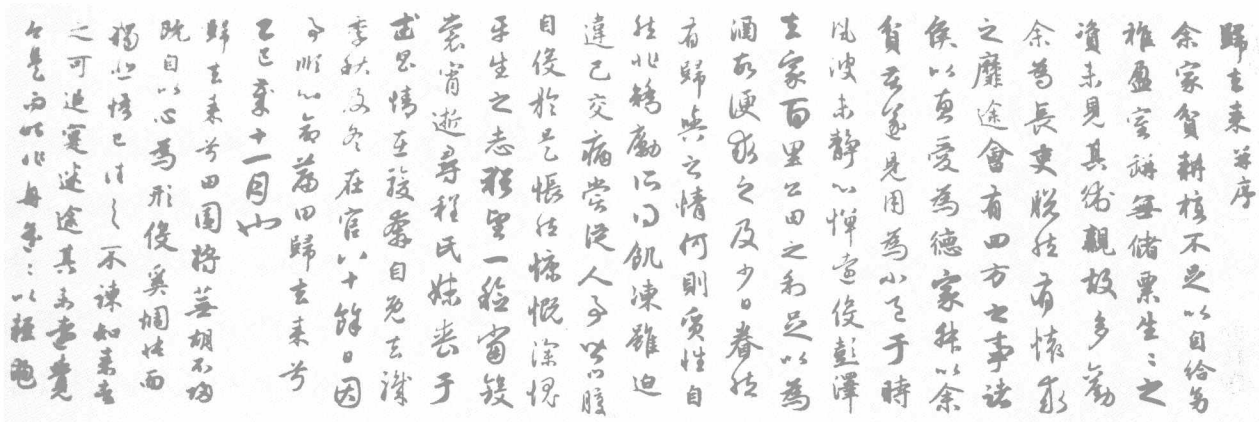 歸去来並序
余家貧耕植不足以自給幼
稚盈室缾無儲粟生〻之
資未見其術親故多勸
余為長吏脫然有懷求
之靡途會有四方之事諸
侯以惠愛為德家叔以余
貧苦遂見用為小邑于時
風波未靜心憚遠役彭澤
去家百里公田之利足以為
酒故便求之及少日眷然
有歸與之情何則質性自
然非矯勵所得飢凍雖迫
違己交病嘗從人事皆口腹
自役於是悵然慷慨深愧
平生之志猶望一稔當斂
裳宵逝尋程氏妹喪于
武昌情在駿奔自免去職
季秋及冬在官八十餘日因
事順心命篇曰歸去来兮
乙巳歲十一月也
歸去来兮田園將蕪胡不歸
既自以心為形役奚惆悵而
獨悲悟已往之不諫知来者
之可追寔迷途其未遠覺
今是而昨非舟遙〻以輕颺